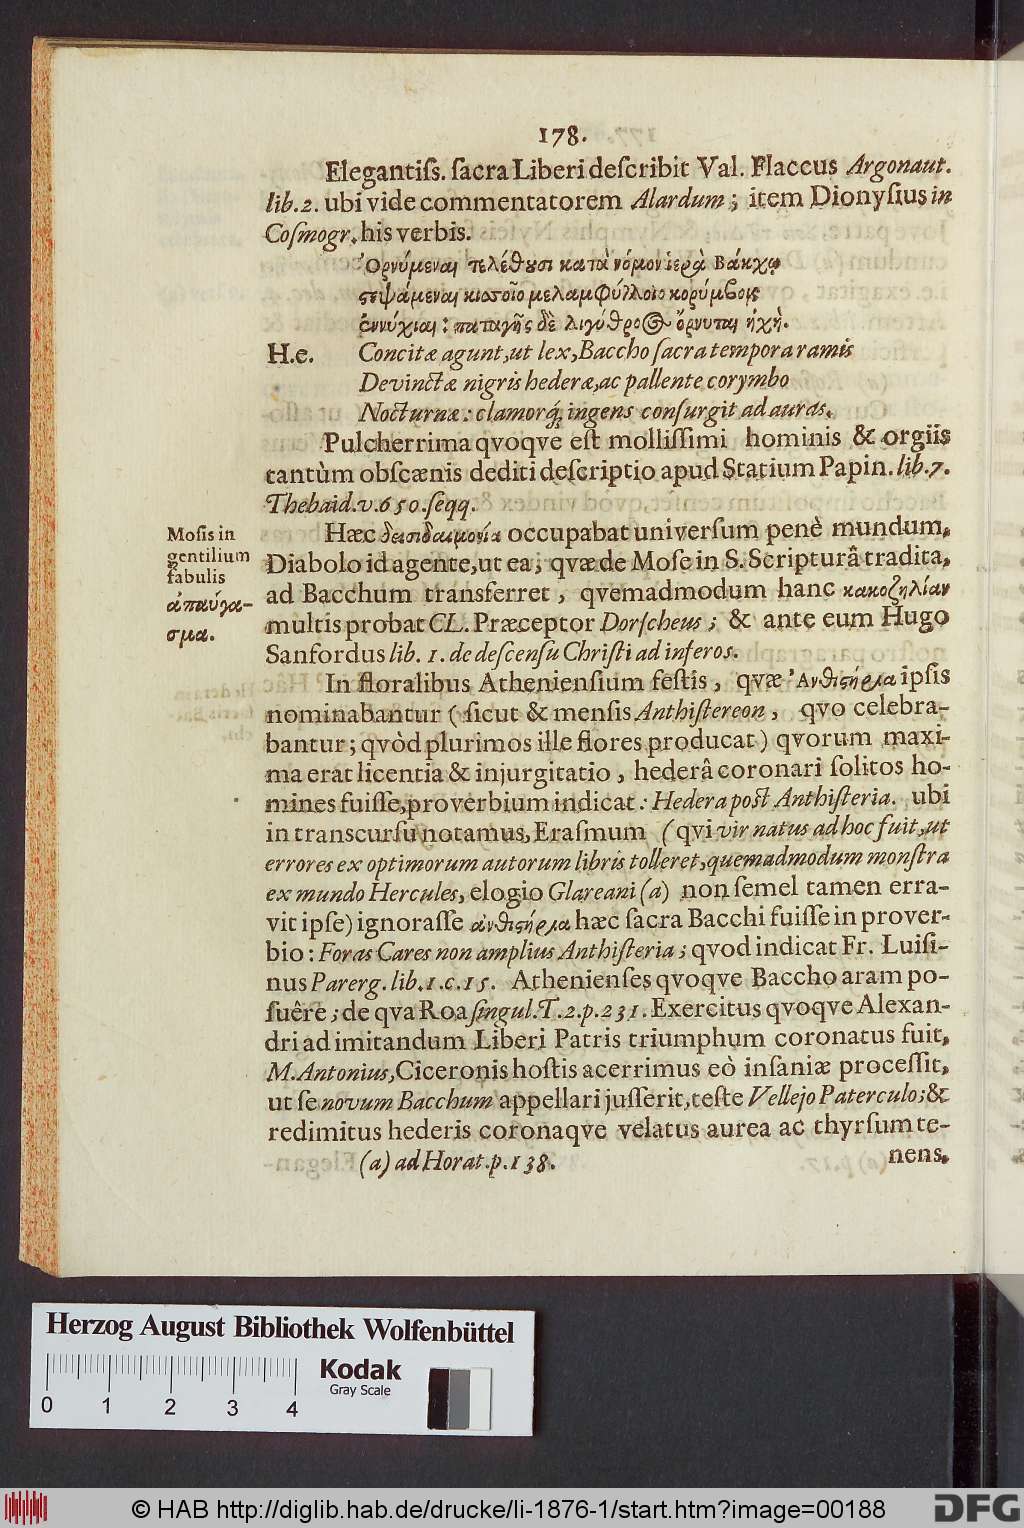 178.
Elegantiſs. ſacra Liberi deſcribit Val. Flaccus Argonaut.
lib. 2. ubi vide commentatorem Alardum; item Dionyſius in
Coſmogr. his verbis.
Ὀρνύμεναι τελέθουσι κατὰ νόμον ἱερὰ Βάκχῳ
στεψάμεναι κισσοῖο μελαμφύλλοιο κορύμβοις
ἐννύχιαι: παταγῆς δὲ λιγύθροος ὄρνυται ἠχή.
H. e. Concitæ agunt, ut lex, Baccho ſacra tempora ramis
Devinctæ nigris hederæ, ac pallente corymbo
Nocturnæ: clamorq́; ingens conſurgit ad auras.
Pulcherrima qvoqve eſt molliſſimi hominis & orgiis
tantùm obſcænis dediti deſcriptio apud Statium Papin. lib. 7.
Thebaid. v. 650. ſeqq.
Mosis in
gentilium
fabulis
ἀπαύγα-
σμα.
Hæc δεισιδαιμονία occupabat univerſum penè mundum,
Diabolo id agente, ut ea, qvæ de Moſe in S. Scripturâ tradita,
ad Bacchum transferret, qvemadmodum hanc κακοζηλίαν
multis probat CL. Præceptor Dorſcheus; & ante eum Hugo
Sanfordus lib. 1. de deſcenſu Chriſti ad inferos.
In floralibus Athenienſium feſtis, qvæ Ἀνθιστήρια ipſis
nominabantur (ſicut & menſis Anthiſtereon, qvo celebra-
bantur; qvòd plurimos ille flores producat) qvorum maxi-
ma erat licentia & injurgitatio, hederâ coronari ſolitos ho-
mines fuiſſe, proverbium indicat: Hedera poſt Anthiſteria. ubi
in transcurſu notamus, Eraſmum (qvi vir natus ad hoc fuit, ut
errores ex optimorum autorum libris tolleret, quemadmodum monſtra
ex mundo Hercules, elogio Glareani (a) non ſemel tamen erra-
vit ipſe) ignoraſſe ἀνθιστήρια hæc ſacra Bacchi fuiſſe in prover-
bio: Foras Cares non amplius Anthiſteria; qvod indicat Fr. Luiſi-
nus Parerg. lib. 1. c. 15. Athenienſes qvoqve Baccho aram po-
ſuêre; de qva Roa ſingul. T. 2. p. 231. Exercitus qvoqve Alexan-
dri ad imitandum Liberi Patris triumphum coronatus fuit,
M. Antonius, Ciceronis hoſtis acerrimus eò inſaniæ proceſſit,
ut ſe novum Bacchum appellari juſſerit, teſte Vellejo Paterculo; &
redimitus hederis coronaqve velatus aurea ac thyrſum te-
nens,
(a) ad Horat. p. 138.
Herzog August Bibliothek Wolfenbüttel
Kodak
Gray Scale
0 1 2 3 4
© HAB http://diglib.hab.de/drucke/li-1876-1/start.htm?image=00188
DFG